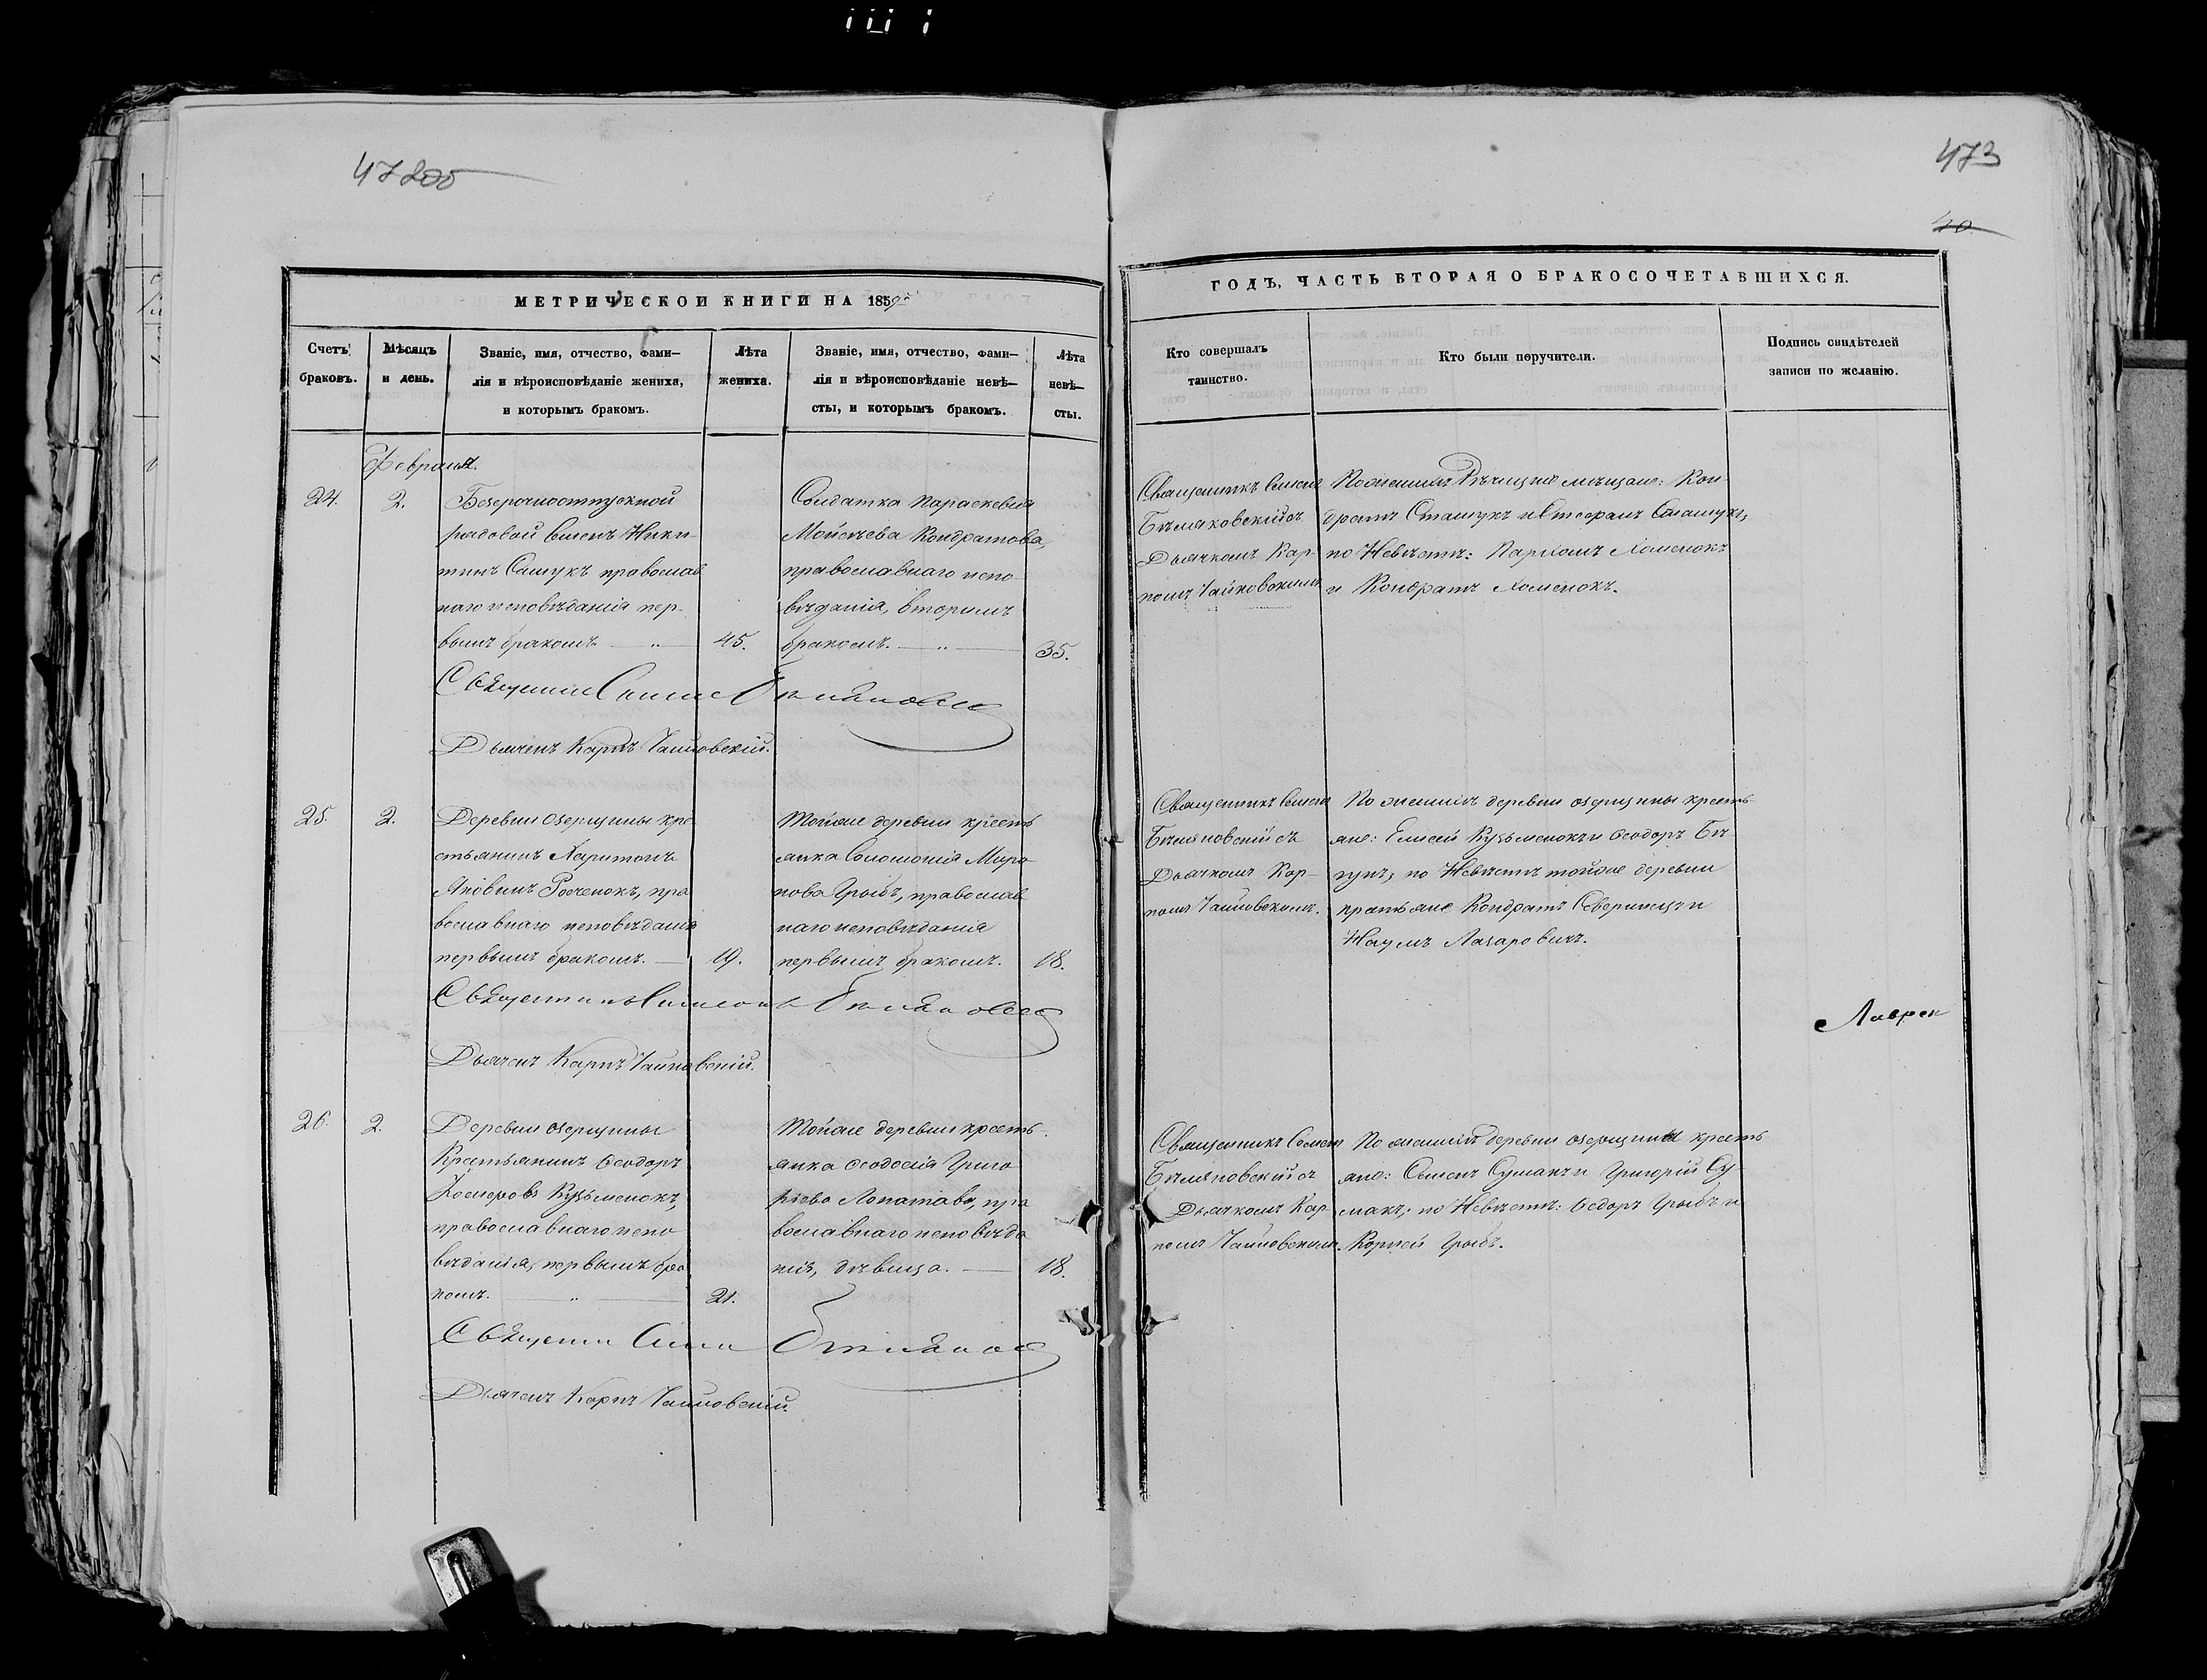 473
40
МЕТРИЧЕСКОЙ КНИГИ НА 1859
ГОДЪ, ЧАСТЬ ВТОРАЯ О БРАКОСОЧЕТАВШИХСЯ.
Счетъ
браковъ.
Мѣсяцъ
и день.
Званіе, имя, отчество, фами—
лія и вѣроисповѣданіе жениха,
и которымъ бракомъ.
Лѣта
жениха.
Званіе, имя, отчество, фами—
лія и вѣроисповѣданіе невѣ—
сты, и которымъ бракомъ.
Лѣта
невѣ—
сты.
Кто совершалъ
таинство.
Кто были поручители.
Подпись свидѣтелей
записи по желанію.
Февраля.
24.
2.
Безсрочноотпускной
рядовой Семенъ Ники-
тинъ православ
наго исповѣданія пер-
вымъ бракомъ. — „ —
45.
Солдатка Параскевія
Моисеева Кондратова,
православнаго испо-
вѣданія, вторымъ
бракомъ. — „ —
35.
Священникъ Семенъ
Бѣляновскій съ
Дьячкомъ Кар-
помъ
По женихѣ Рѣчицкіе мѣщане: Кон-
дратъ Сташукъ и Сташукъ,
по Невѣстѣ: Пархомъ Хоменокъ
и Кондратъ Хоменокъ.
Дьячекъ Карпъ
25.
2.
Деревни Озерщины кре
стьянинъ Харитонъ
Яковлевъ пра
вославнаго исповѣданія
первымъ бракомъ. —
19.
Тойже деревни кресть
янка Соломонія Миро
нова Грыбъ, православ
наго исповѣданія
первымъ бракомъ.
18.
Священникъ Семенъ
Бѣляновскій съ
Дьячкомъ Кар-
помъ
По женихѣ деревни Озерщины кресть-
яне: Елисей Кузьменокъ и Ѳеодоръ Бѣ-
гунъ, по Невѣстѣ тойже деревни
крестьяне Кондратъ Северинецъ и
Наумъ Лазаровичъ.
Дьячекъ Карпъ
Лаврен
26.
2.
Деревни Озерщины
Крестьянинъ Ѳеодоръ
Кузьменокъ,
православнаго испо
вѣданія, первымъ бра
комъ. — „ —
21.
Тойже деревни кресть
янка Ѳеодосія Григо
рьева Лопатова, пра
вославнаго исповѣда
нія, дѣвица. —
18.
Священникъ Семенъ
Бѣляновскій съ
Дьячкомъ Кар-
помъ
По женихѣ деревни Озерщины кресть
яне: Семенъ Сумакъ и Григорій Су-
макъ; по Невѣстѣ: Ѳедоръ Грыбъ и
Корней Грыбъ.
Дьячекъ Карпъ